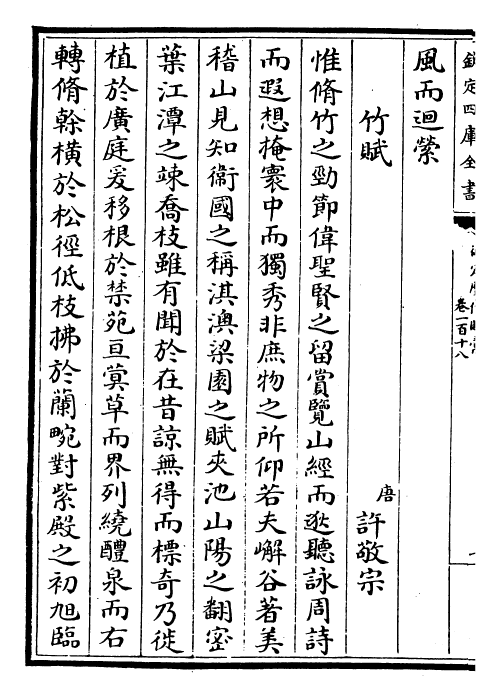 欽定四庫全書
卷一百十八
風而迴縈
竹賦
唐 許敬宗
惟脩竹之勁節偉聖賢之留賞覽山經而逖聽詠周詩
而遐想掩寰中而獨秀非庶物之所仰若夫嶰谷著美
稽山見知衞國之稱淇澳梁園之賦夾池山陽之翻密
葉江潭之竦喬枝雖有聞於在昔諒無得而標奇乃徙
植於廣庭爰移根於禁苑亘蓂草而界列繞醴泉而右
轉脩榦橫於松徑低枝拂於蘭畹對紫殿之初旭臨